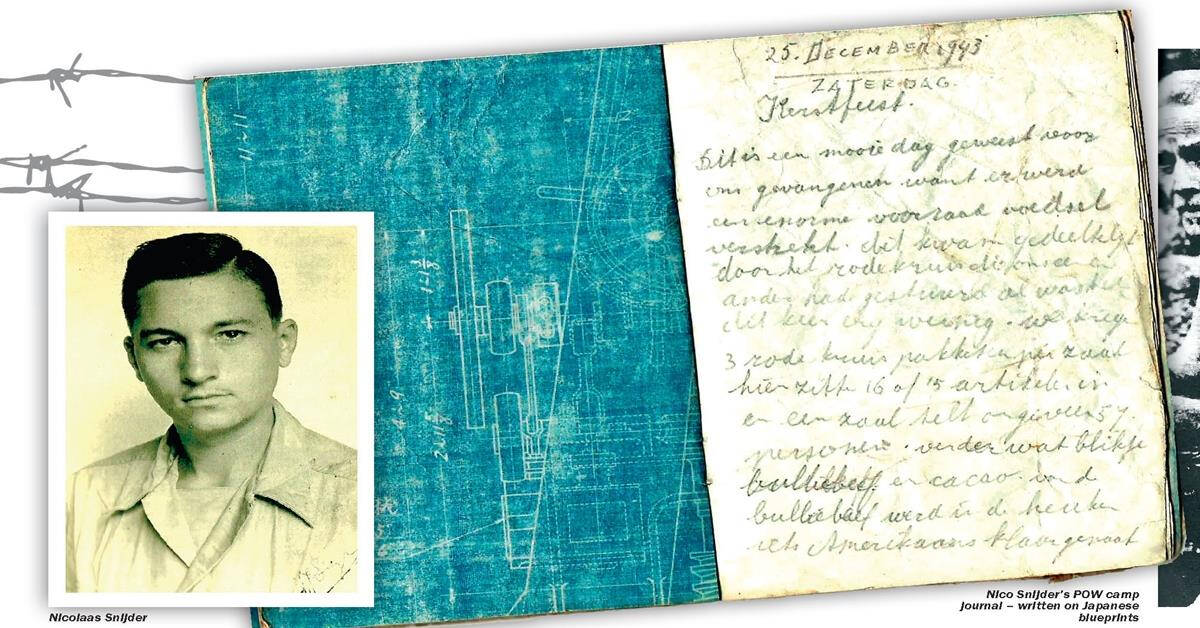 25. DECEMBER 1943
ZATERDAG.
Kerstfeest.
Dit is een mooie dag geweest voor
ons gevangenen want er werd
een enorme voorraad voedsel
verstrekt. dit kwam gedeeltelijk
door het rode kruis die ons een
ander had gestuurd al was het
dit keer erg weinig. we kregen
3 rode kruis pakketten per zaal
hier zitten 16 of 15 artikelen in
en een zaal telt ongeveer 57
personen. verder wat blikje
bulliebeef en cacao. van de
bulliebeef werd in de keuken
iets Amerikaans klaargemaakt
11-11
Nicolaas Snijder
Nico Snijder's POW camp
journal – written on Japanese
blueprints